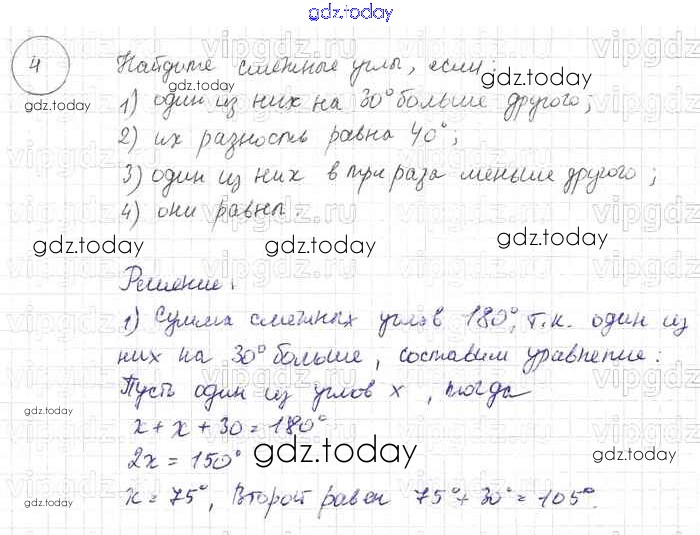 gdz.today
4
Найдите смежные углы, если:
gdz.today
gdz.today
1) один из них на 30° больше другого;
2) их разность равна 40°;
3) один из них в три раза меньше другого;
4) они равны.
gdz.today gdz.today gdz.today
Решение:
1) Сумма смежных углов 180°, т.к. один из
них на 30° больше, составим уравнение:
Пусть один из углов x, тогда
gdz.today
x + x + 30 = 180°
2x = 150°
gdz.today
gdz.today
x = 75°, Второй равен 75° + 30° = 105°.
gdz.today
vipgdz.ru